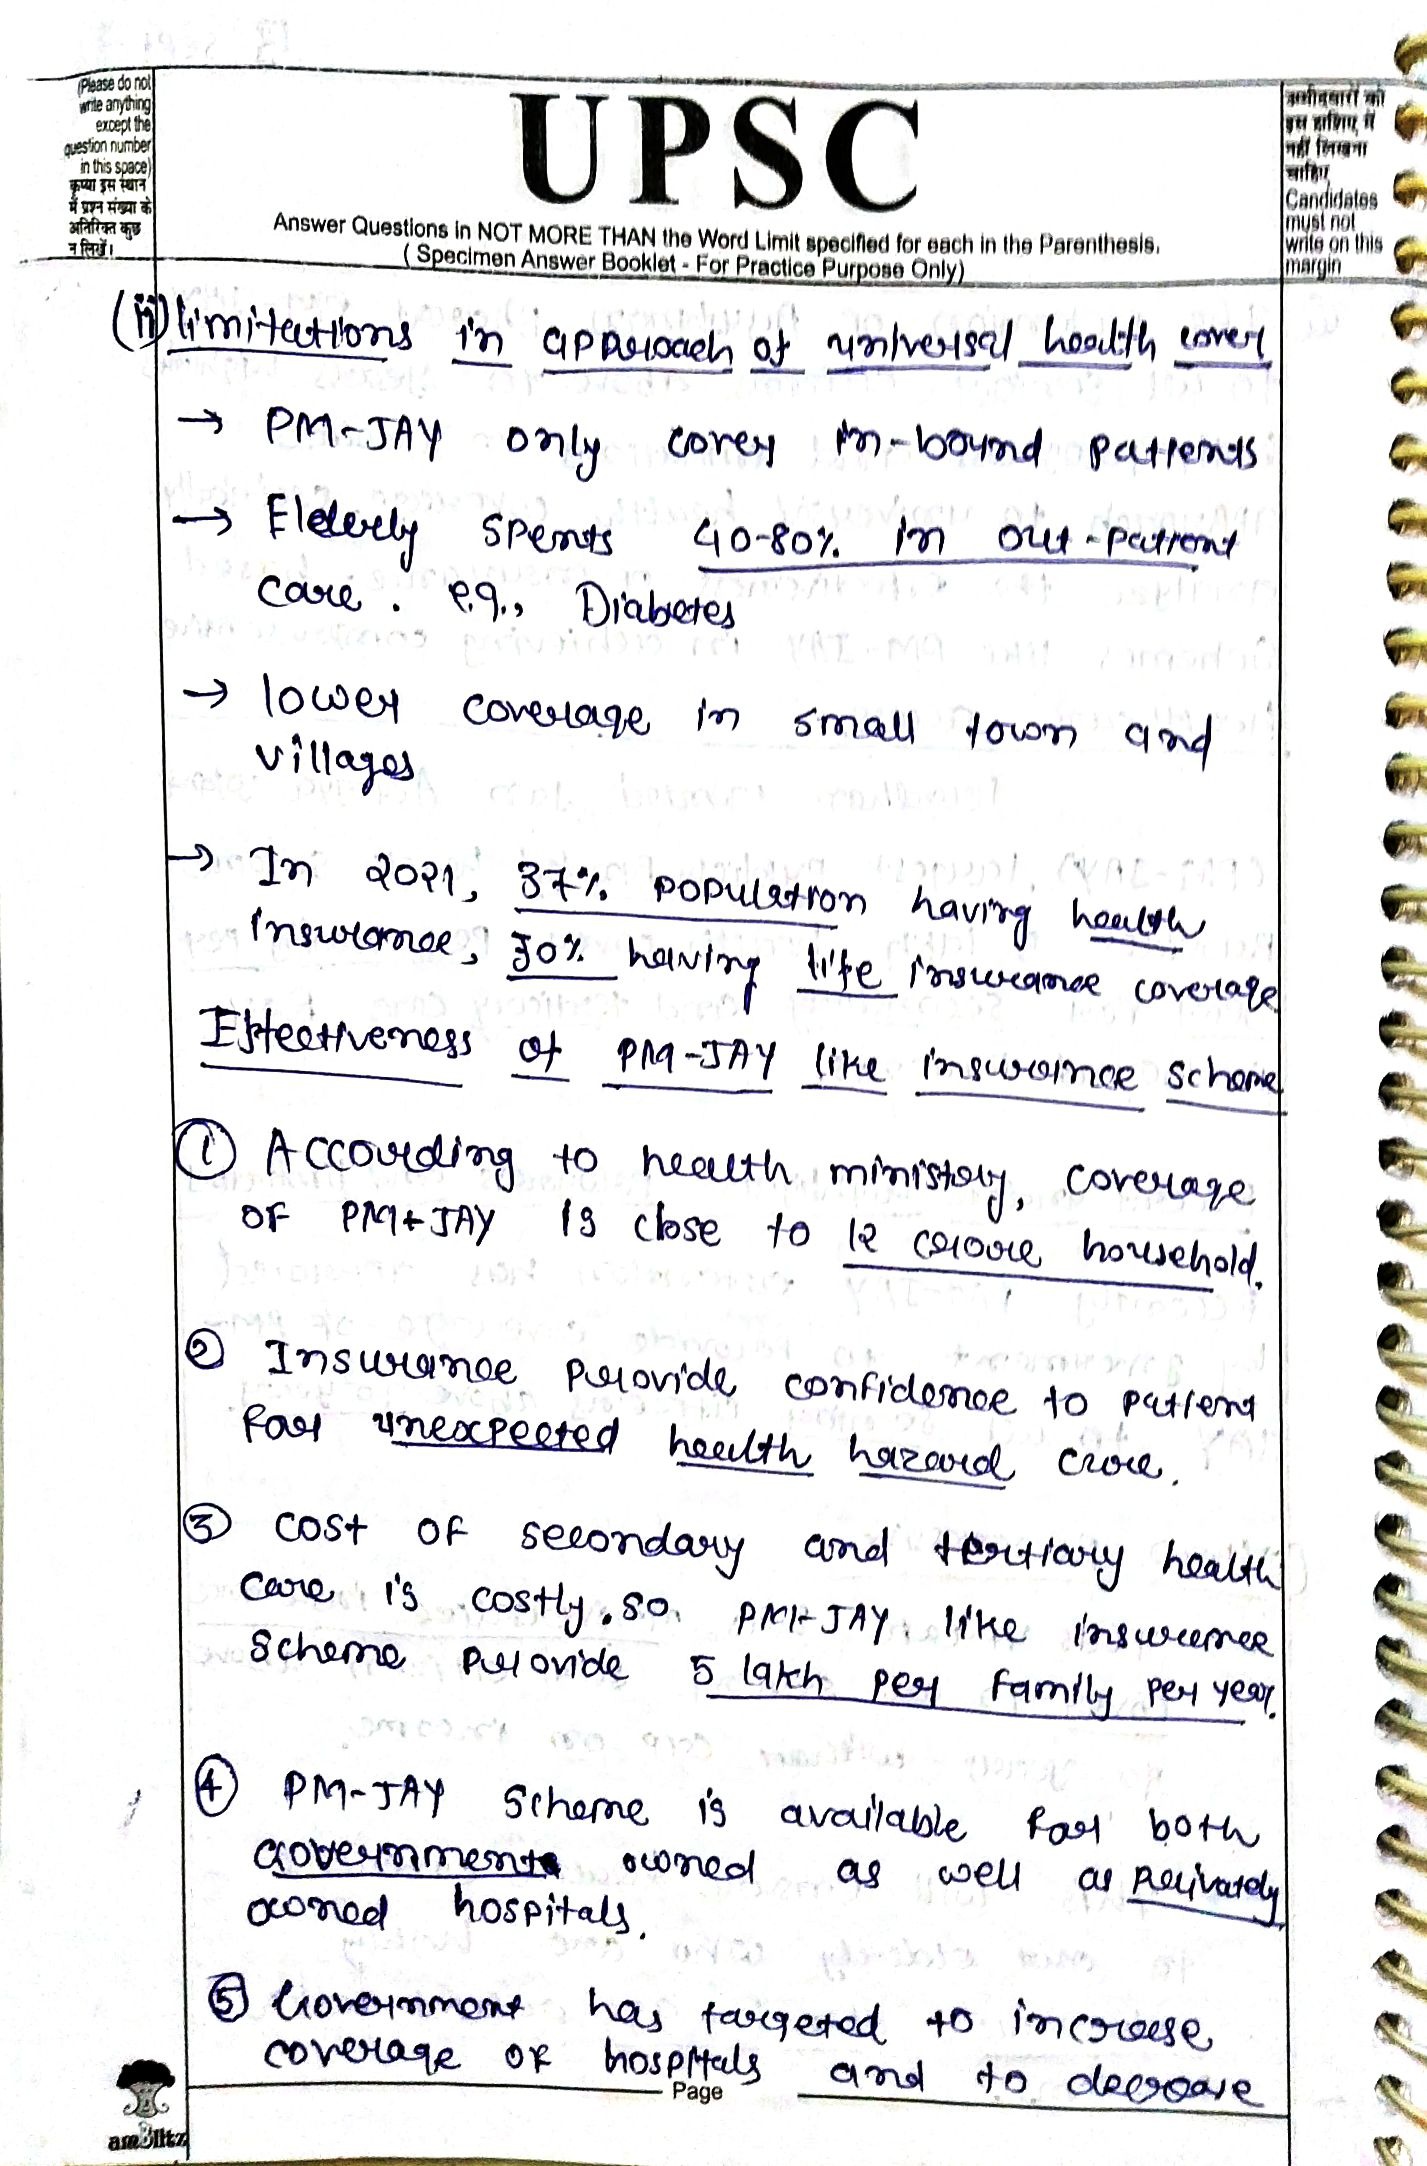 (Please do not
write anything
except the
question number
in this space)
कृप्या इस स्थान
में प्रश्न संख्या के
अतिरिक्त कुछ
न लिखें।
UPSC
Answer Questions in NOT MORE THAN the Word Limit specified for each in the Parenthesis.
( Specimen Answer Booklet - For Practice Purpose Only)
उम्मीदवारों को
इस हाशिए में
नहीं लिखना
चाहिए
Candidates
must not
write on this
margin
(ii) limitations in approach of universal health cover
→ PM-JAY only cover in-bound patients
→ Elderly spents 40-80% in out-patient
care. e.g., Diabetes
→ lower coverage in small town and
villages
→ In 2021, 37% population having health
insurance, 30% having life insurance coverage
Effectiveness of PM-JAY like insurance scheme
① According to health ministory, coverage
of PM-JAY is close to 12 crore household.
② Insurance provide confidence to patient
for unexpected health hazard
③ cost of secondary and tertiary health
care is costly. so PM-JAY like insurance
scheme provide 5 lakh per family per year.
④ PM-JAY scheme is available for both
Government owned as well as privately
owned hospitals.
⑤ Government has targeted to increase
coverage of hospitals and to decrease
Page